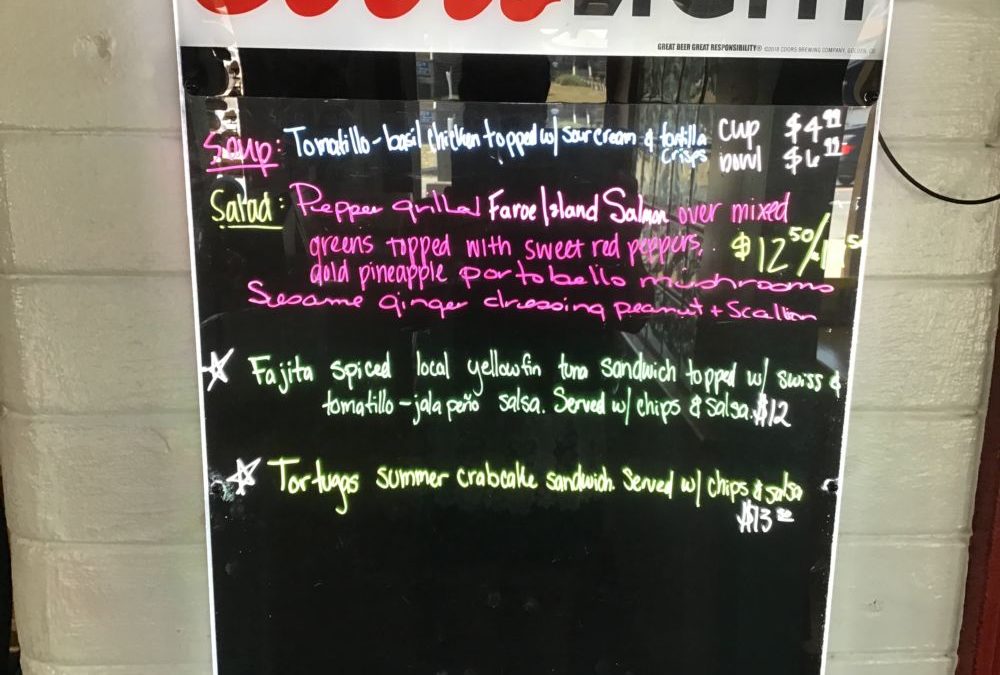 Coors LIGHT
GREAT BEER GREAT RESPONSIBILITY® ©2018 COORS BREWING COMPANY, GOLDEN, CO
Soup: Tomatillo-basil chicken topped w/ sour cream & tortilla crisps cup $4.99
bowl $6.99
Salad: Pepper grilled Faroe Island Salmon over mixed
greens topped with sweet red peppers, $12.50/
gold pineapple portobello mushrooms
Sesame ginger dressing peanut + Scallion
☆ Fajita spiced local yellowfin tuna sandwich topped w/ swiss &
tomatillo-jalapeño salsa. Served w/ chips & salsa. $12
☆ Tortugas summer crabcake sandwich. Served w/ chips & salsa
$13.50